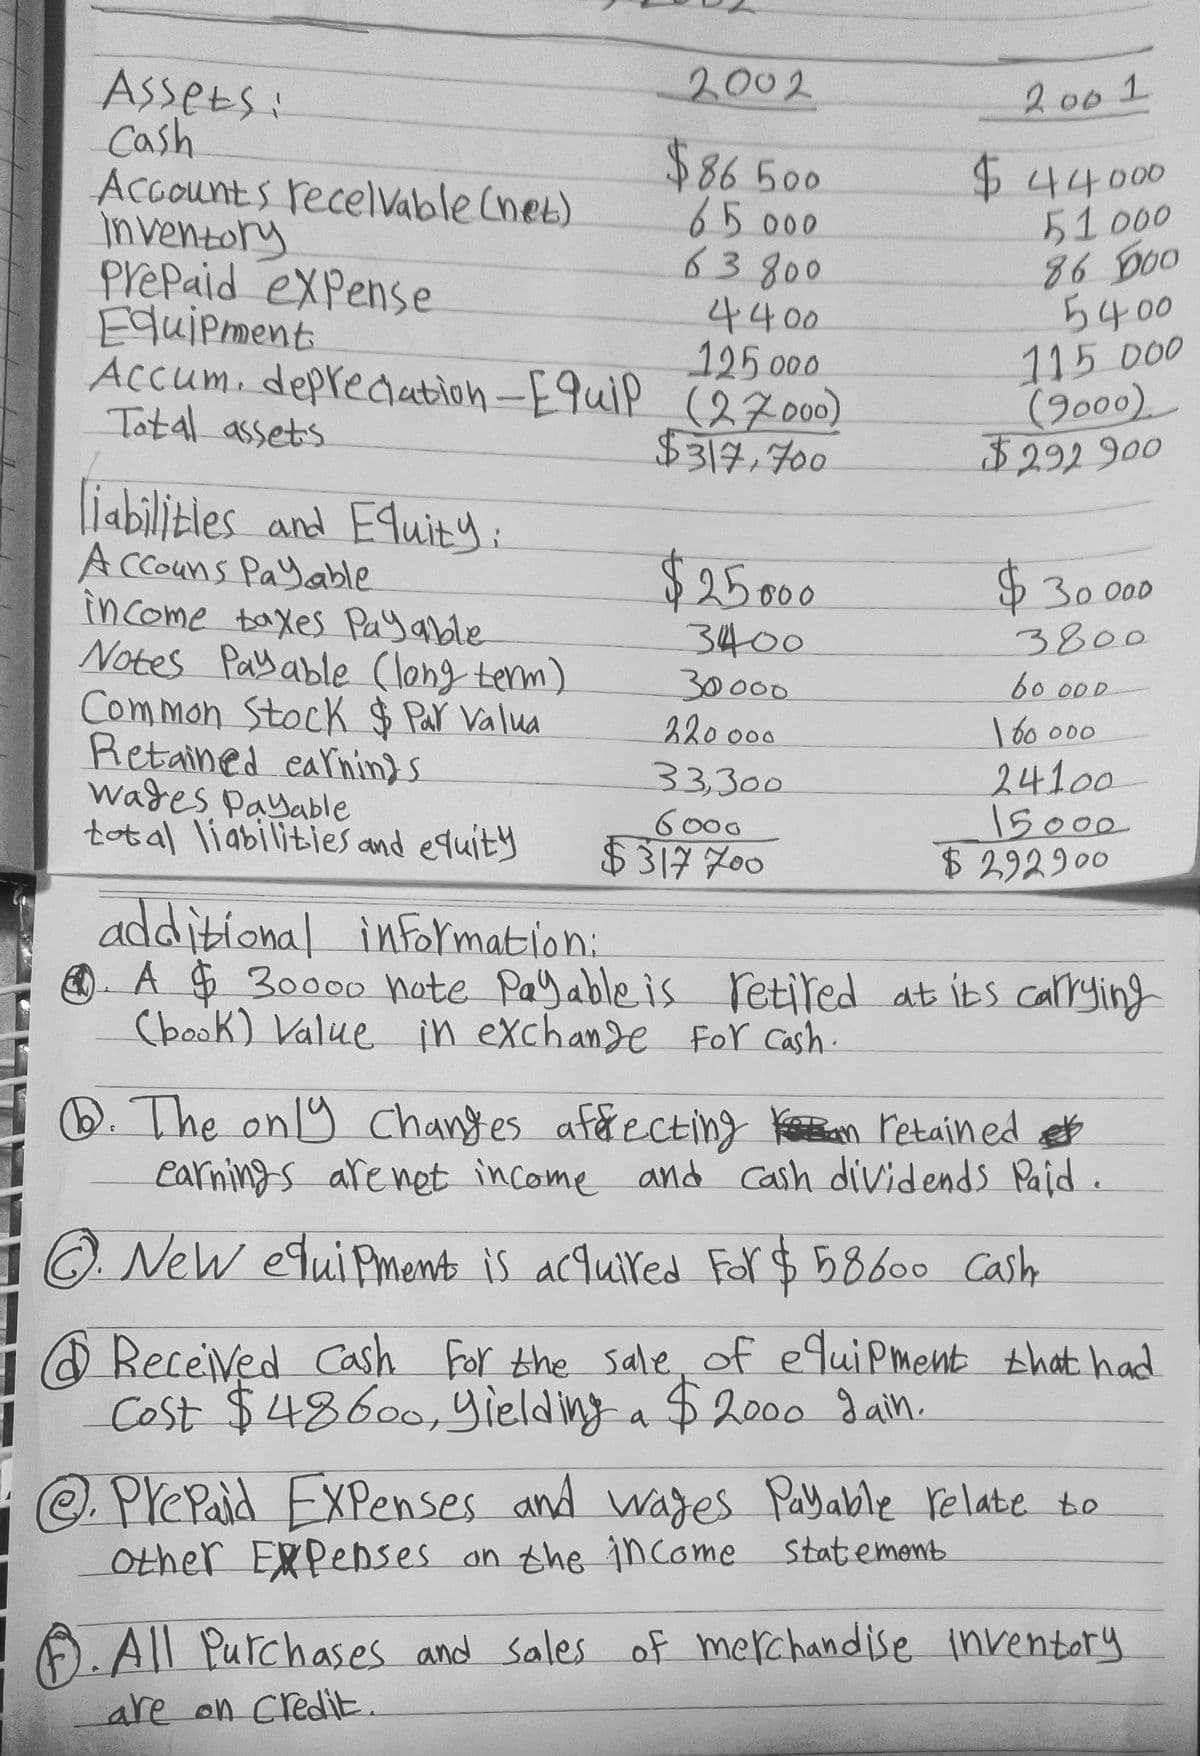 2002 2001
Assets:
Cash $86 500 $ 44000
Accounts recelvable (net) 65 000 51 000
inventory 63 800 86 500
prepaid expense 4400 5400
Equipment 125 000 115 000
Accum. depreciation - Equip (27000) (9000)
Total assets $317,700 $292 900
liabilities and Equity:
Accouns Payable $25000 $ 30 000
income taxes Payable 3400 3800
Notes Payable (long term) 30000 60 000
Common Stock $ Par Valua 220 000 160 000
Retained earnings 33,300 24100
wages payable 6000 15000
total liabilities and equity $ 317 700 $ 292900
additional information:
a. A $ 30000 note Payable is retired at its carrying
(book) Value in exchange For Cash.
b. The only changes affecting retained
earnings are net income and cash dividends Paid.
c. New equipment is acquired For $ 58600 Cash
d Received Cash For the sale of equipment that had
Cost $48600, yielding a $2000 gain.
e. Prepaid Expenses and wages Payable relate to
other Expenses on the income statement
F. All Purchases and sales of merchandise inventory
are on Credit.